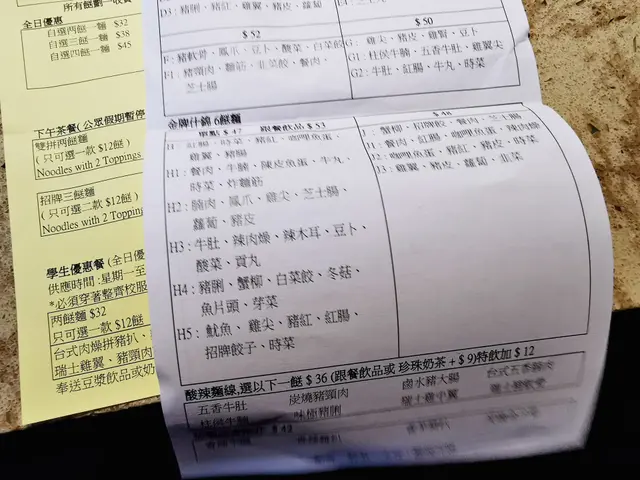 所有餸劃一收費
全日優惠
自選两餸一麵 $32
自選三餸一麵 $38
自選四餸一麵 $45
下午茶餐(公眾假期暫停
雙拼两餸麵
(只可選一款 $12餸)
Noodles with 2 Toppings
招牌三餸麵
(只可選二款 $12餸)
Noodles with 2 Topping
學生優惠餐(全日優
供應時間:星期一至
*必須穿著整齊校服
两餸麵 $32
只可選一款 $12餸
台式肉燥拼豬扒、
瑞士雞翼、豬頸肉
奉送豆漿飲品或奶
D3: 豬脷、豬紅、雞翼、豬皮、蘿蔔
$52
$50
F: 豬軟骨、鳳爪、豆卜、酸菜、白菜餃
F1: 豬頸肉、麵筋、韭菜餃、餐肉、
芝士腸
G: 雞尖、豬皮、雞腎、豆卜
G1: 柱侯牛腩、五香牛肚、雞翼尖
G2: 牛肚、紅腸、牛丸、時菜
金牌什錦 6餸麵
單點 $47 跟餐飲品 $53
$48
豬紅、咖喱魚蛋、
雞翼、豬腸
H1: 餐肉、牛腩、陳皮魚蛋、牛丸、
時菜、炸麵筋
H2: 腩肉、鳳爪、雞尖、芝士腸、
蘿蔔、豬皮
H3: 牛肚、辣肉燥、辣木耳、豆卜、
酸菜、貢丸
H4: 豬脷、蟹柳、白菜餃、冬菇、
魚片頭、芽菜
H5: 魷魚、雞尖、豬紅、紅腸、
招牌餃子、時菜
J: 蟹柳、招牌餃、餐肉、芝士腸
J1: 餐肉、紅腸、咖喱魚蛋、辣肉燥
J2: 咖喱魚蛋、豬紅、豬皮、時菜
J3: 雞翼、豬皮、蘿蔔、韭菜
酸辣麵線,選以下一餸 $36 (跟餐飲品或 珍珠奶茶 + $9)特飲加 $12
五香牛肚 炭燒豬頸肉 鹵水豬大腸 台式五香腩肉
柱侯牛腩 味極豬脷 瑞士雞中翼